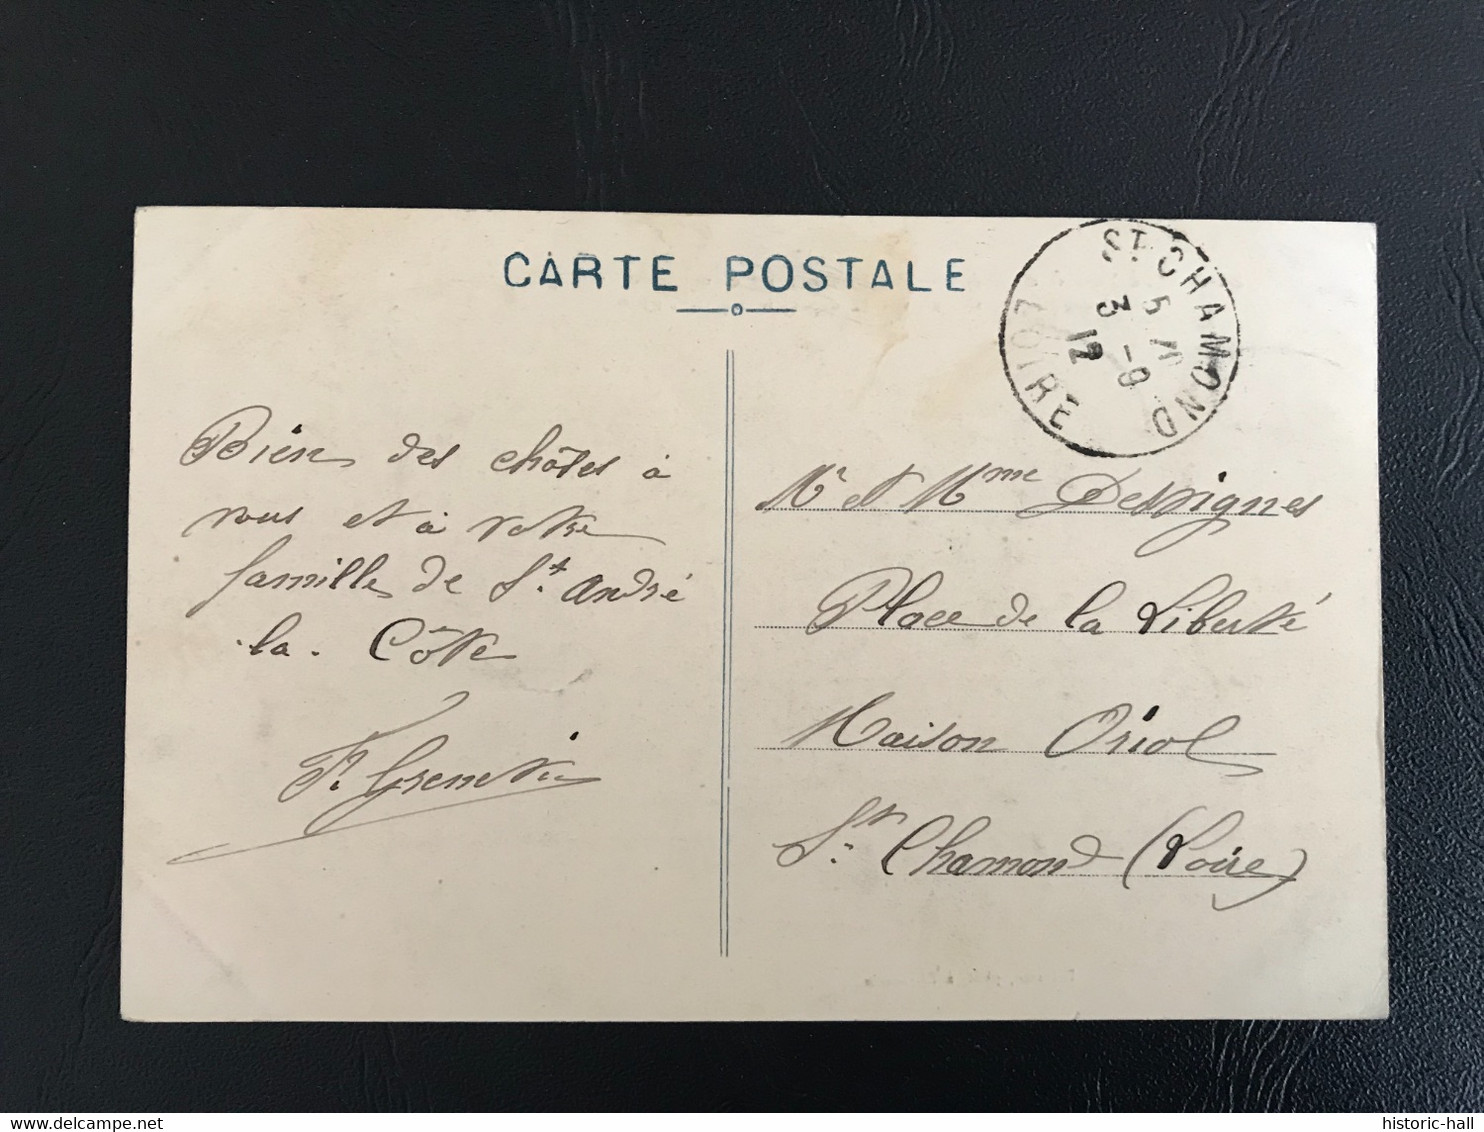 CARTE POSTALE
ST CHAMOND
5 M
3 -9
12
LOIRE
Bien des chôses à
vous et à votre
famille de St. André
la. Côte
Mr et Mme Despignes
Place de la Liberté
Maison Oriol
St. Chamond (Loire)
historic-hall